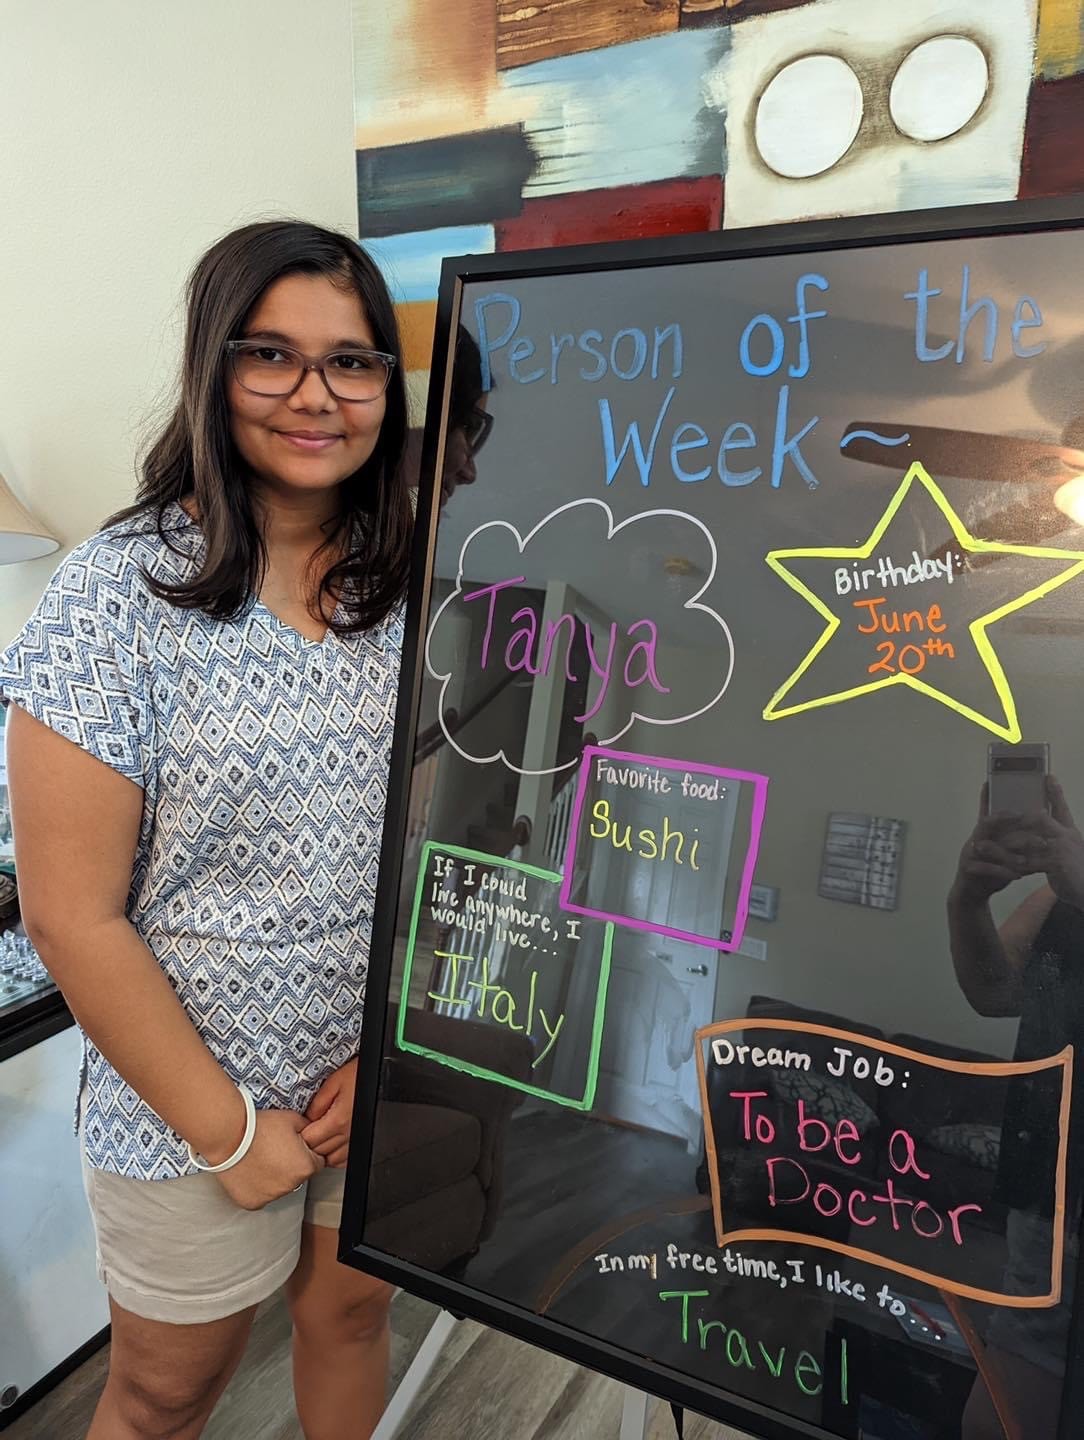 Person of the
Week~
Tanya
Birthday:
June
20th
Favorite food:
Sushi
If I could
live anywhere, I
would live...
Italy
Dream Job:
To be a
Doctor
In my free time, I like to...
Travel